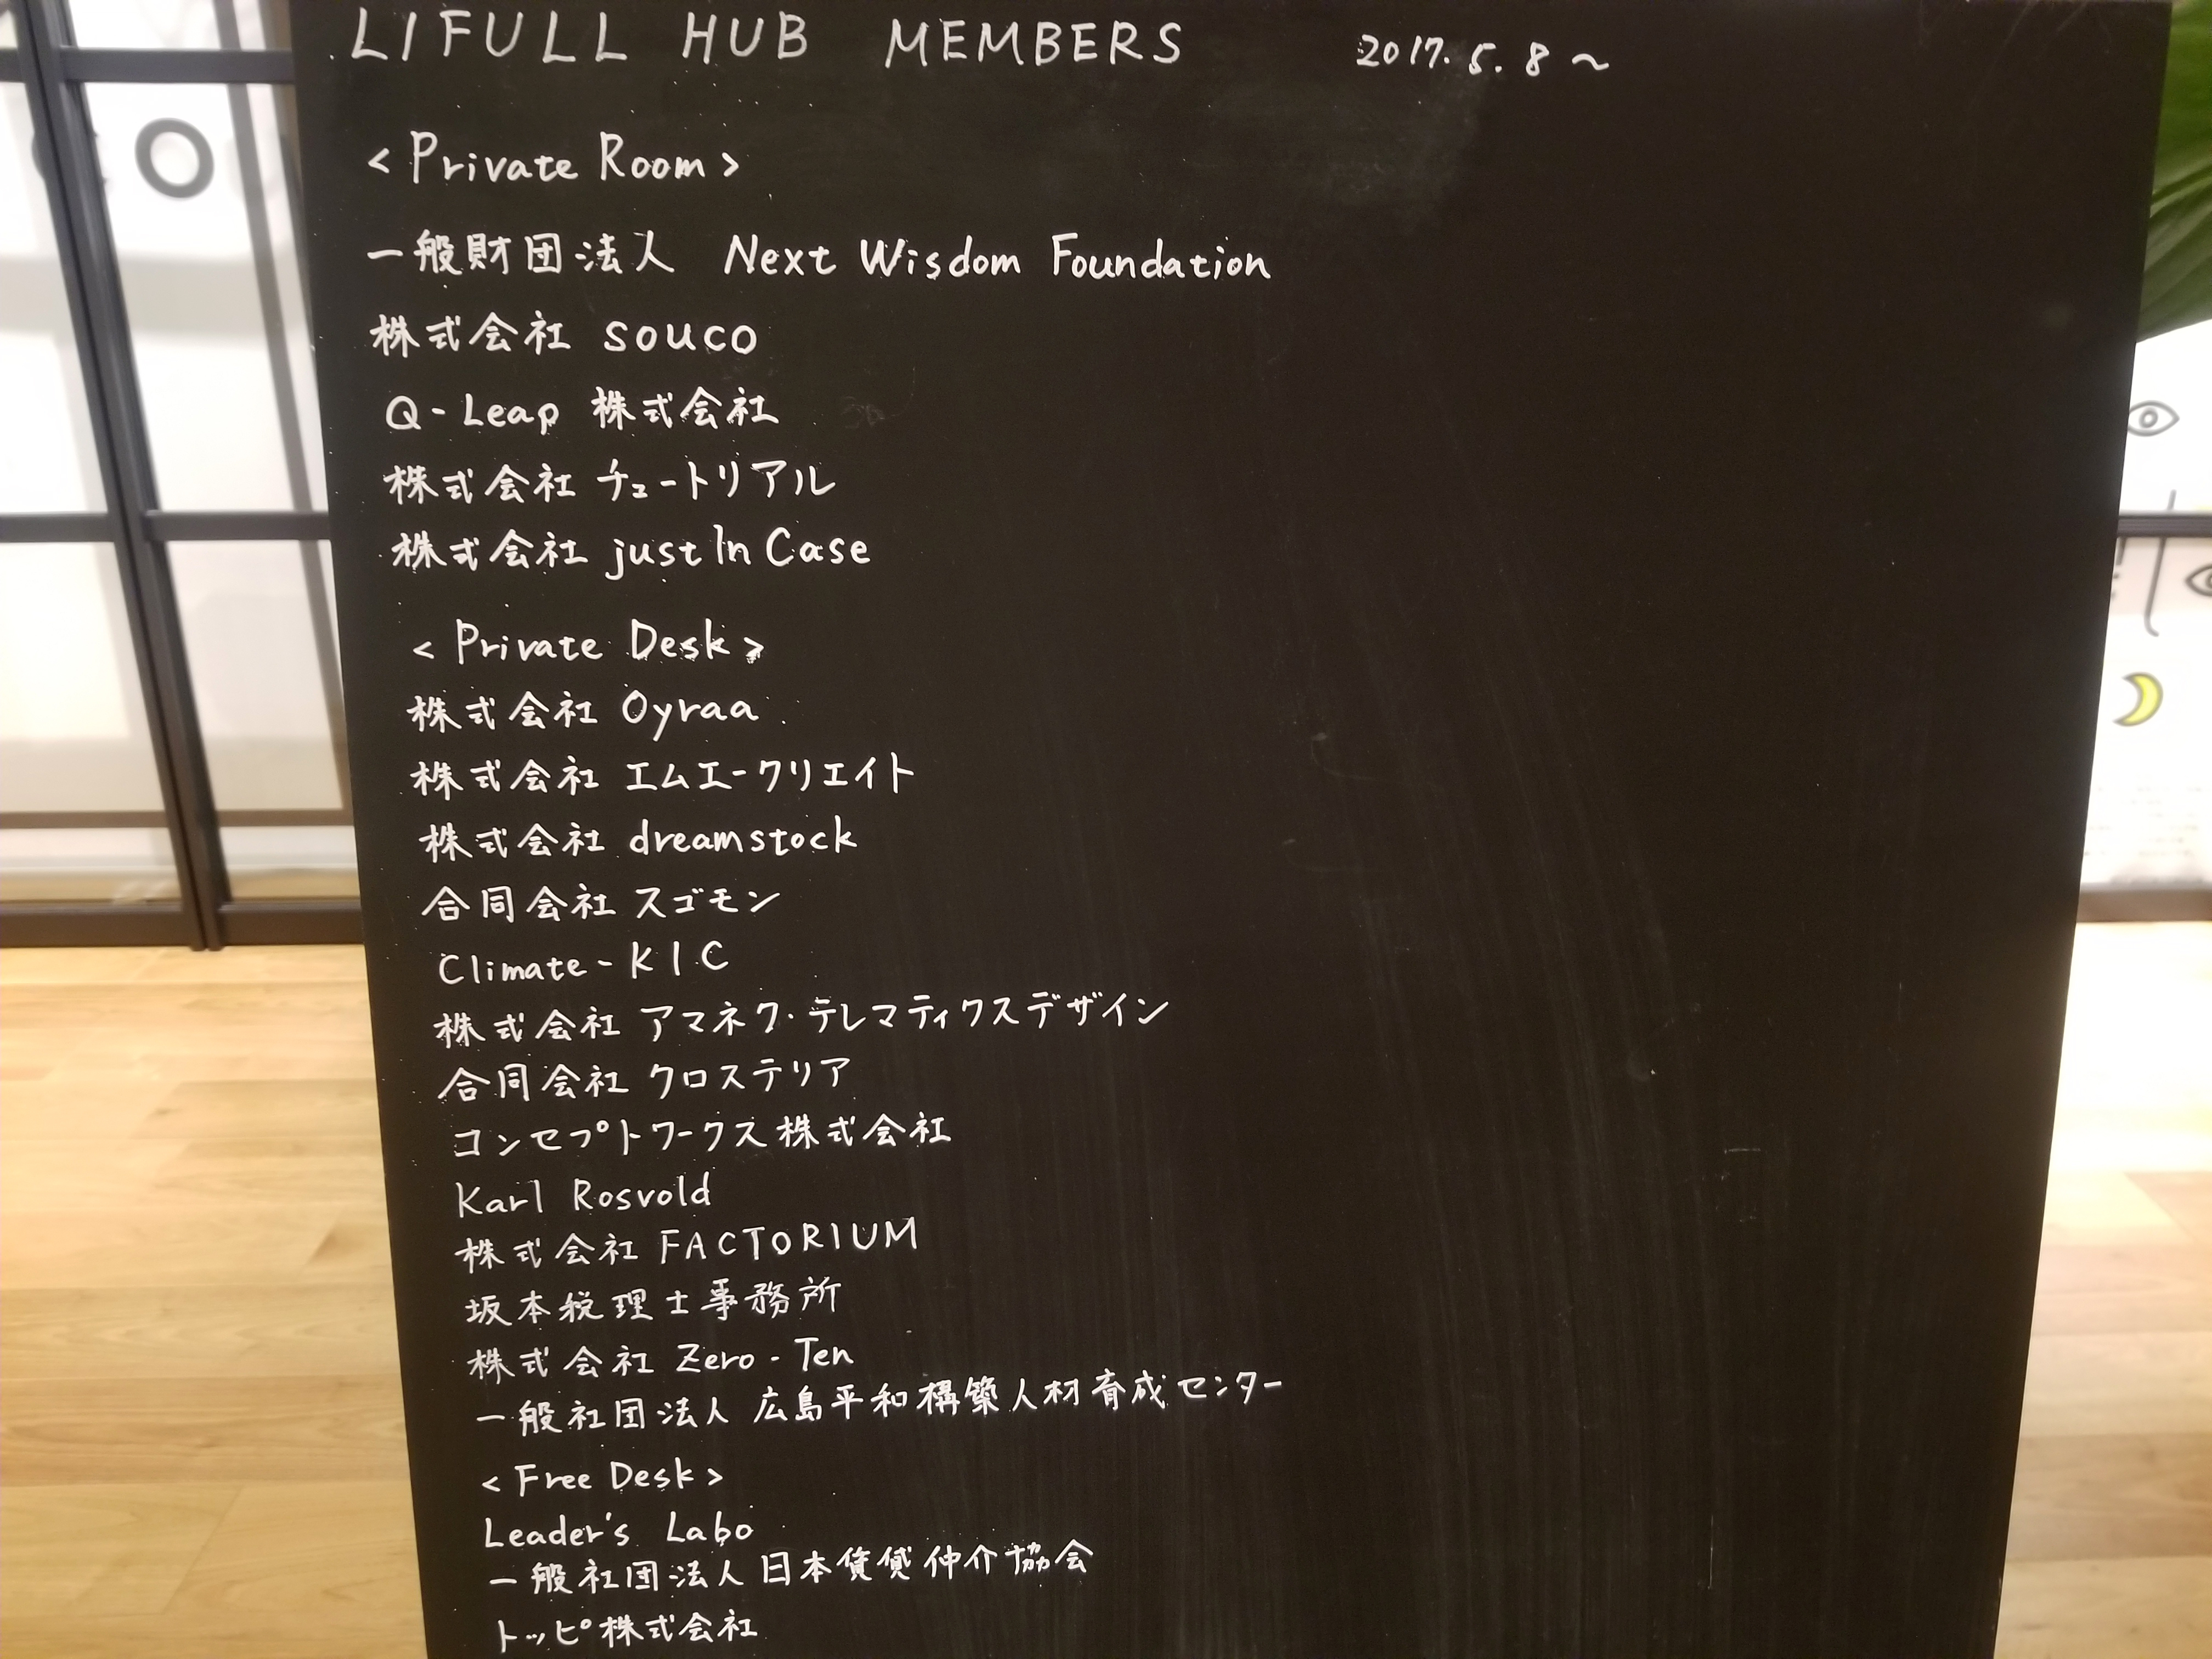 LIFULL HUB MEMBERS 2017.5.8～
<Private Room>
一般財団法人 Next Wisdom Foundation
株式会社 souco
Q-Leap 株式会社
株式会社 チュートリアル
株式会社 justInCase
<Private Desk>
株式会社 Oyraa
株式会社 エムエークリエイト
株式会社 dreamstock
合同会社 スゴモン
Climate-KIC
株式会社 アマネク・テレマティクスデザイン
合同会社 クロステリア
コンセプトワークス株式会社
Karl Rosvold
株式会社 FACTORIUM
坂本税理士事務所
株式会社 Zero-Ten
一般社団法人 広島平和構築人材育成センター
<Free Desk>
Leader's Labo
一般社団法人 日本賃貸仲介協会
トッピ株式会社